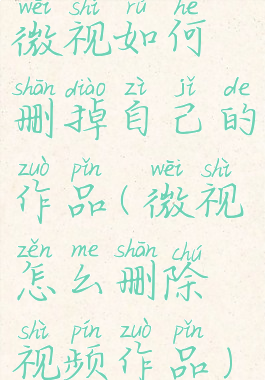 wēi shì rú hé
微视如何
shān diào zì jǐ de
删掉自己的
zuò pǐn wēi shì
作品(微视
zěn me shān chú
怎么删除
shì pín zuò pǐn
视频作品)